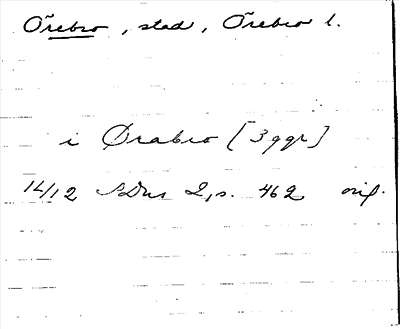 Örebro, stad, Örebro l.
i Ørabro [3 ggr]
1412 SDns 2, s. 462 orig.